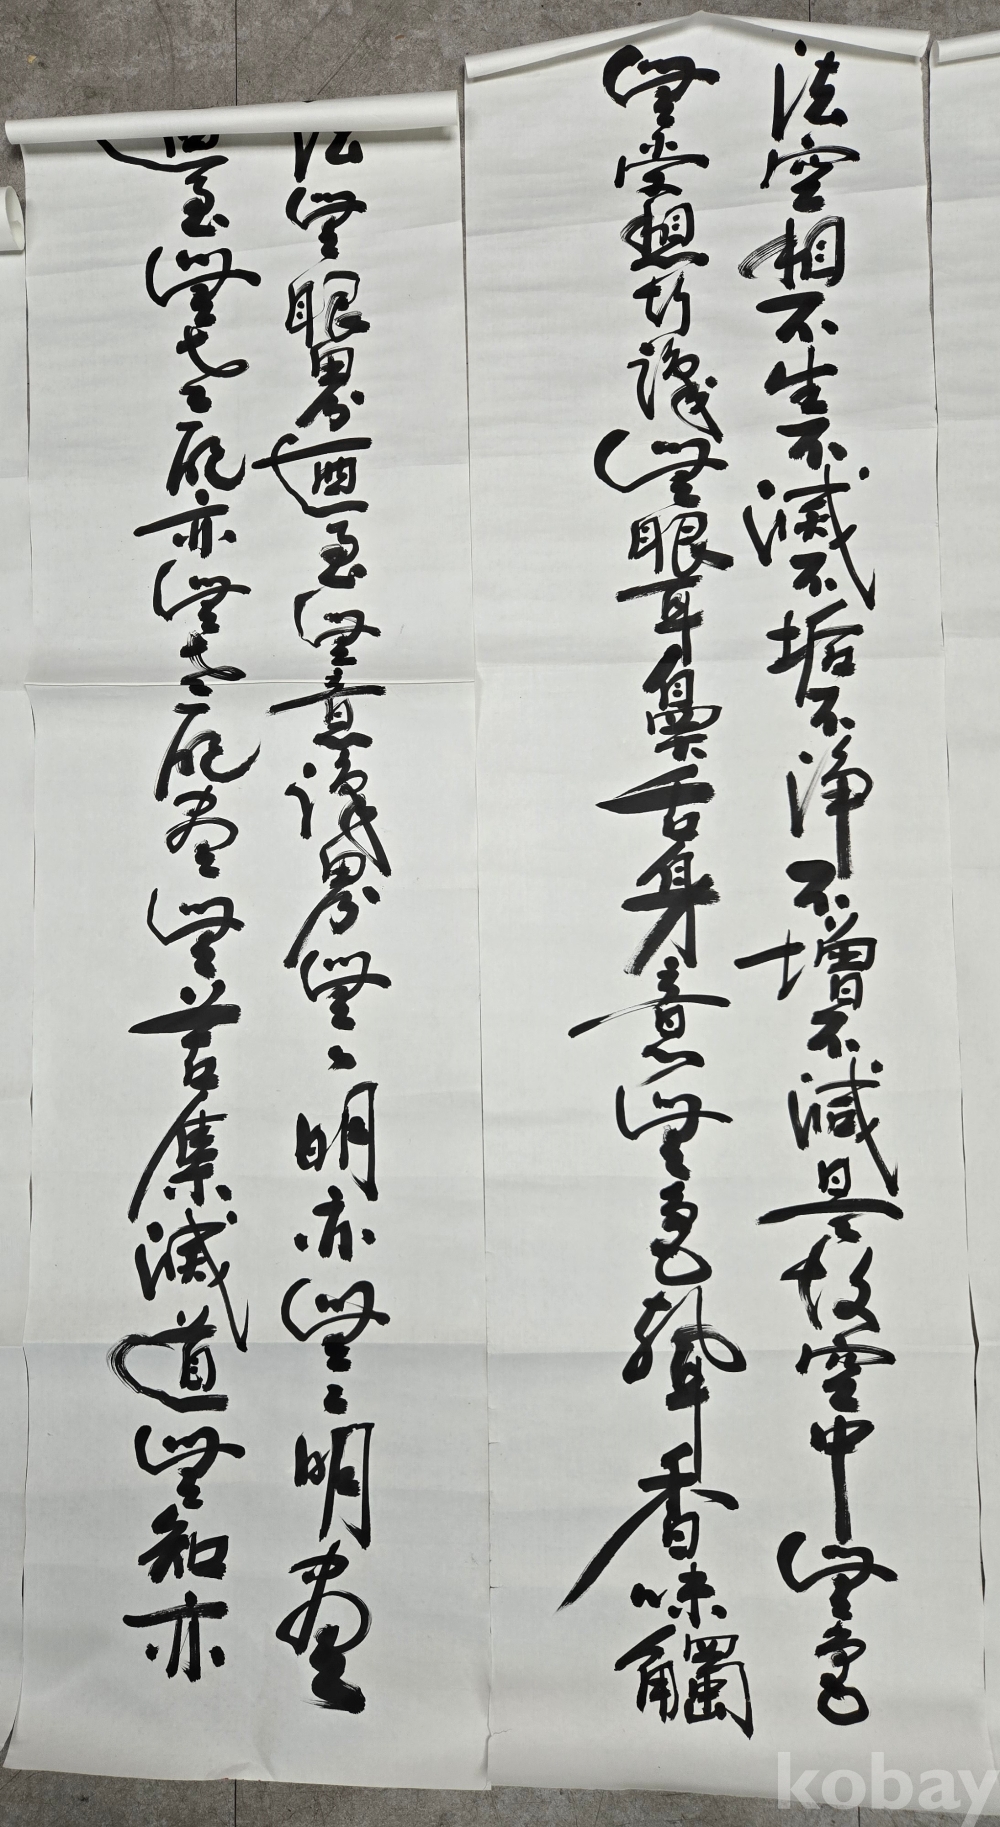 法空相不生不滅不垢不淨不增不減是故空中無色
無受想行識無眼耳鼻舌身意無色聲香味觸
法無眼界迺至無意識界無々明亦無々明盡
迺至無老死亦無老死盡無苦集滅道無知亦
kobay